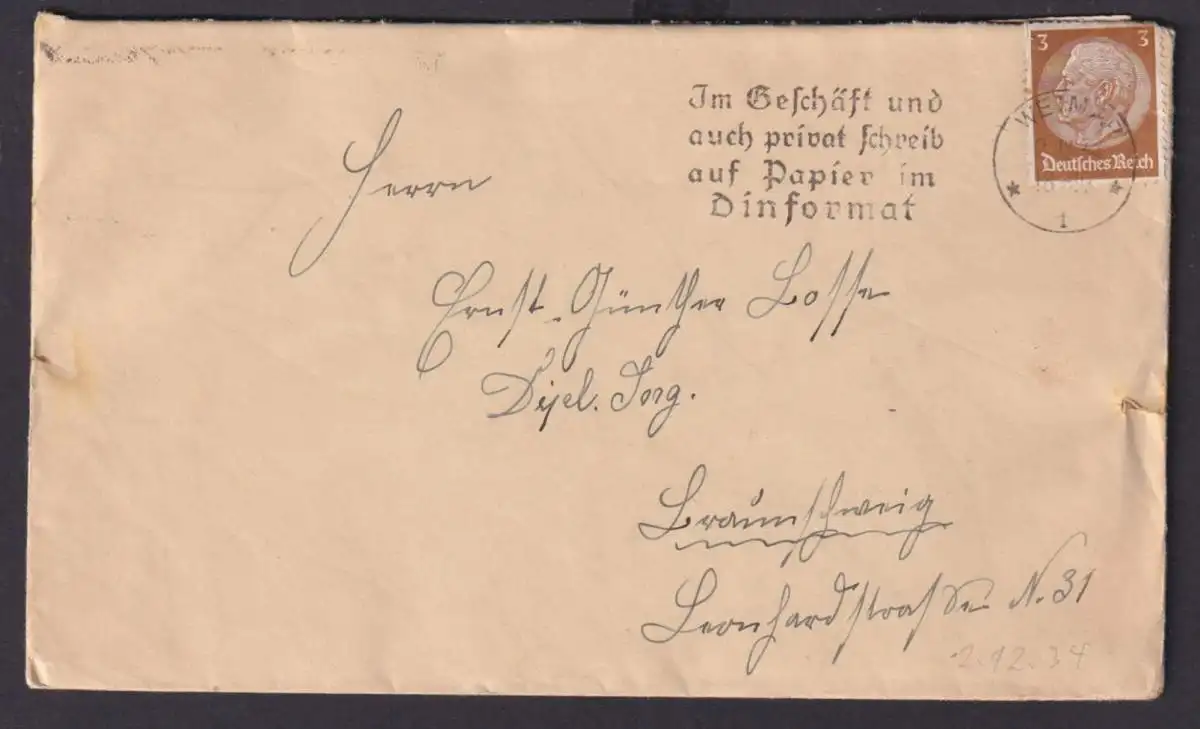 3 3
Deutsches Reich
WEIMAR
1
Im Geschäft und
auch privat schreib
auf Papier im
Dinformat
Herrn
Ernst-Günther Losse
Dipl. Ing.
Braunschweig
Leonhardstraße N. 31
2.12.34